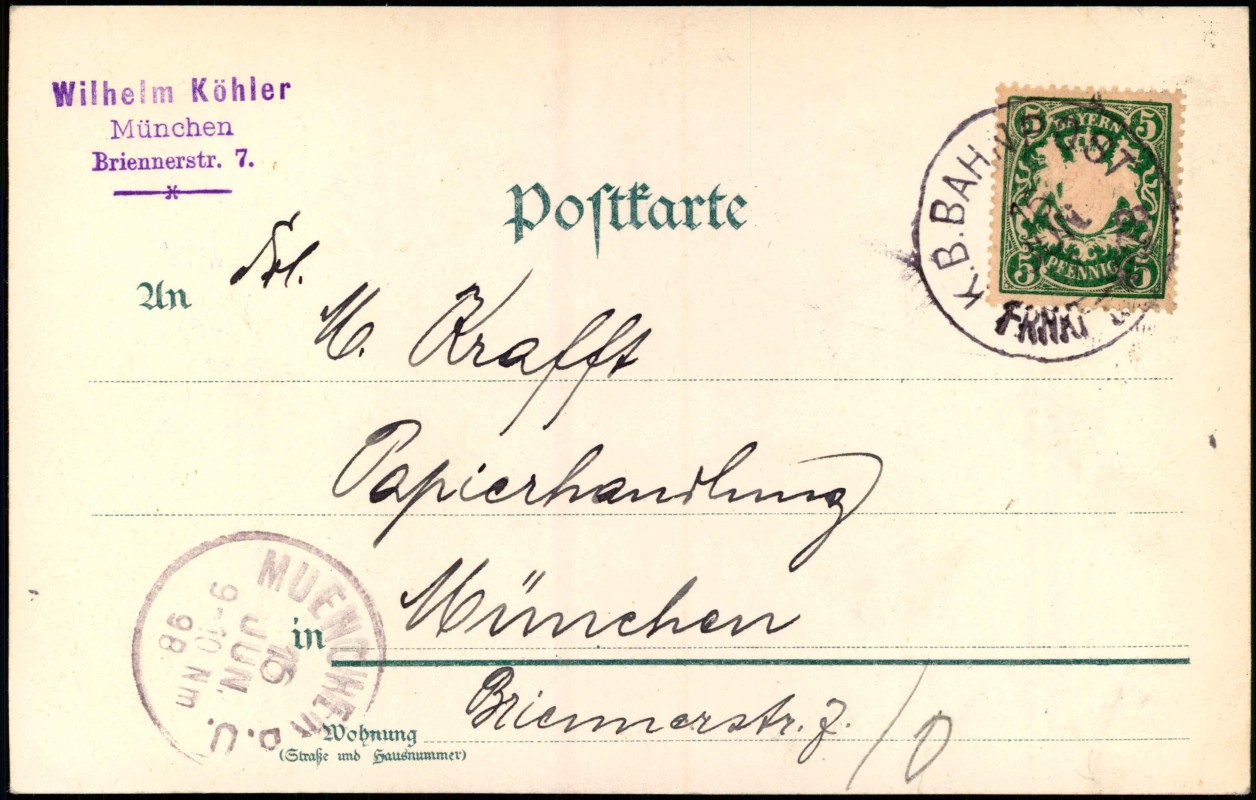 Wilhelm Köhler
München
Briennerstr. 7.
5 BAYERN 5
5 PFENNIG 5
K.B.BAHNPOST
Postkarte
An Frl.
M. Krafft
Papierhandlung
in München
MUENCHEN
15
JUN.
9-10 Nm
98
Wohnung Briennerstr. 7.
(Straße und Hausnummer)